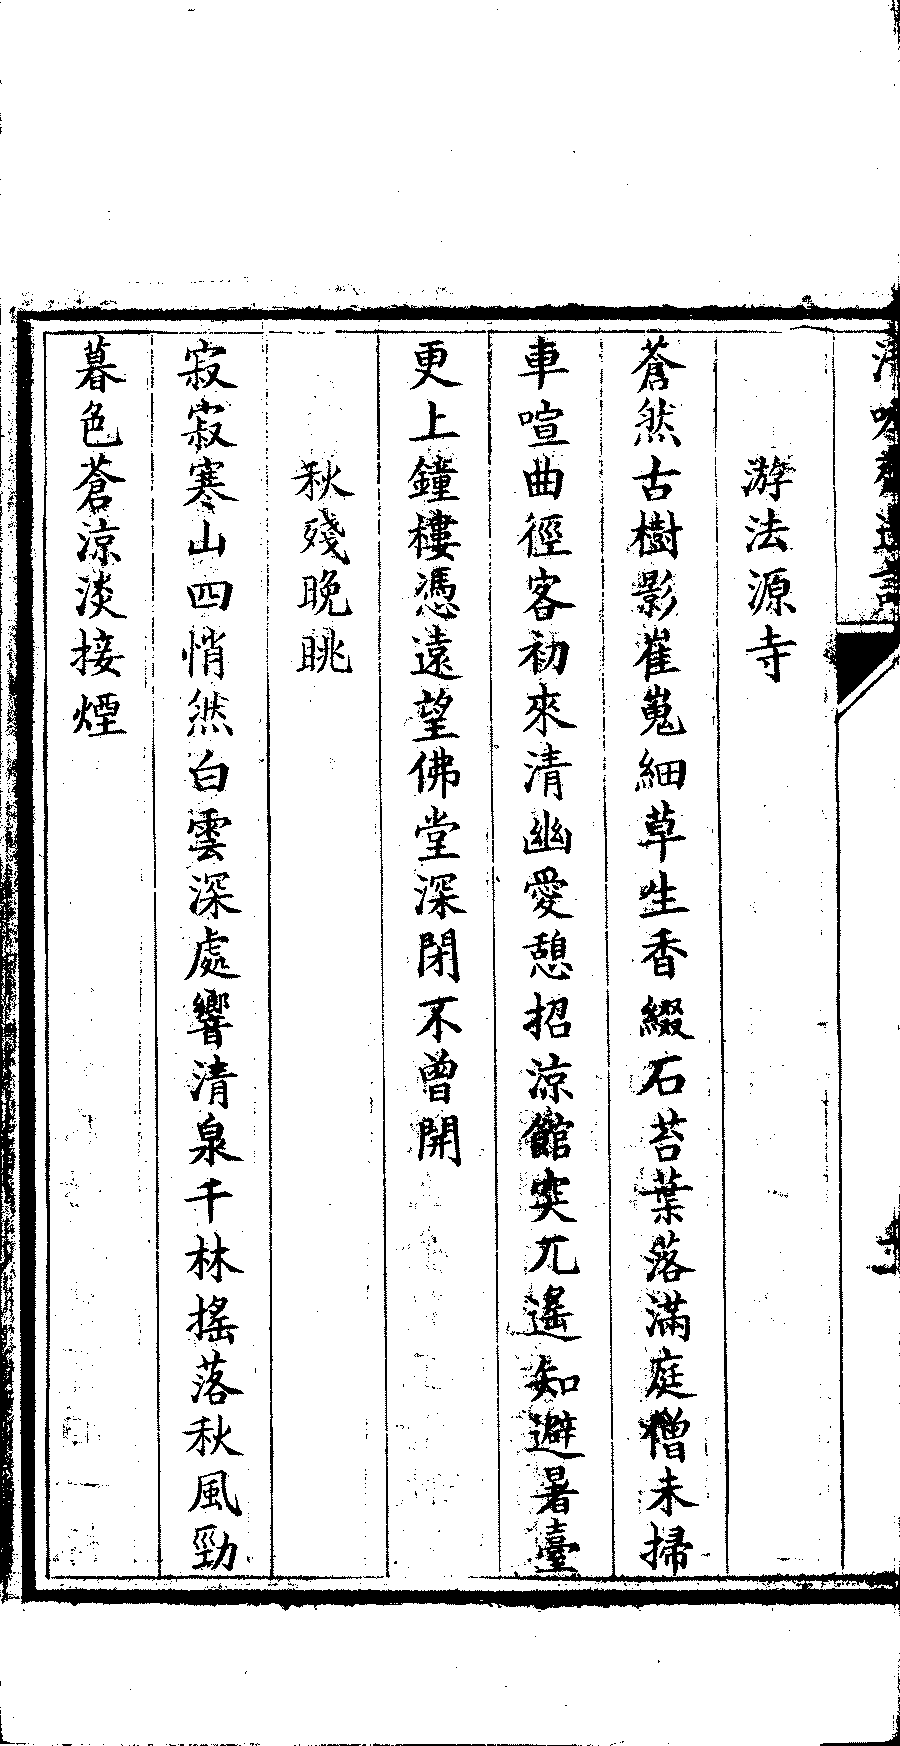 游法源寺
蒼然古樹影崔嵬細草生香綴石苔葉落滿庭僧未掃
車喧曲徑客初來清幽愛憩招涼館突兀遙知避暑臺
更上鐘樓憑遠望佛堂深閉不曾開
秋殘晚眺
寂寂寒山四悄然白雲深處響清泉千林搖落秋風勁
暮色蒼涼淡接煙